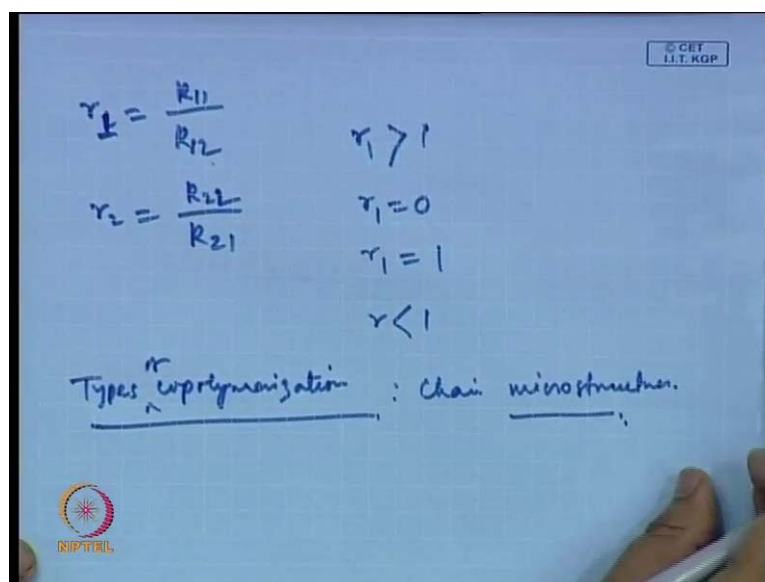 © CET
I.I.T. KGP
r₁ = k₁₁ / k₁₂
r₂ = k₂₂ / k₂₁
r₁ > 1
r₁ = 0
r₁ = 1
r < 1
Types of copolymerization : Chain microstructures.
NPTEL